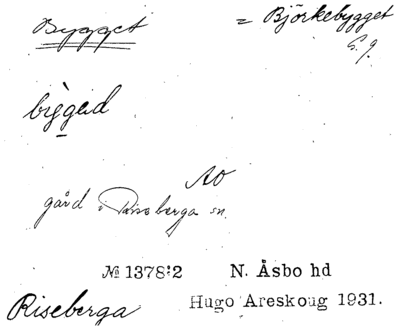 Bygget = Björkebygget
s. g.
bỳged
AO
gård i Riseberga sn.
№ 1378:2 N. Åsbo hd
Riseberga Hugo Areskoug 1931.